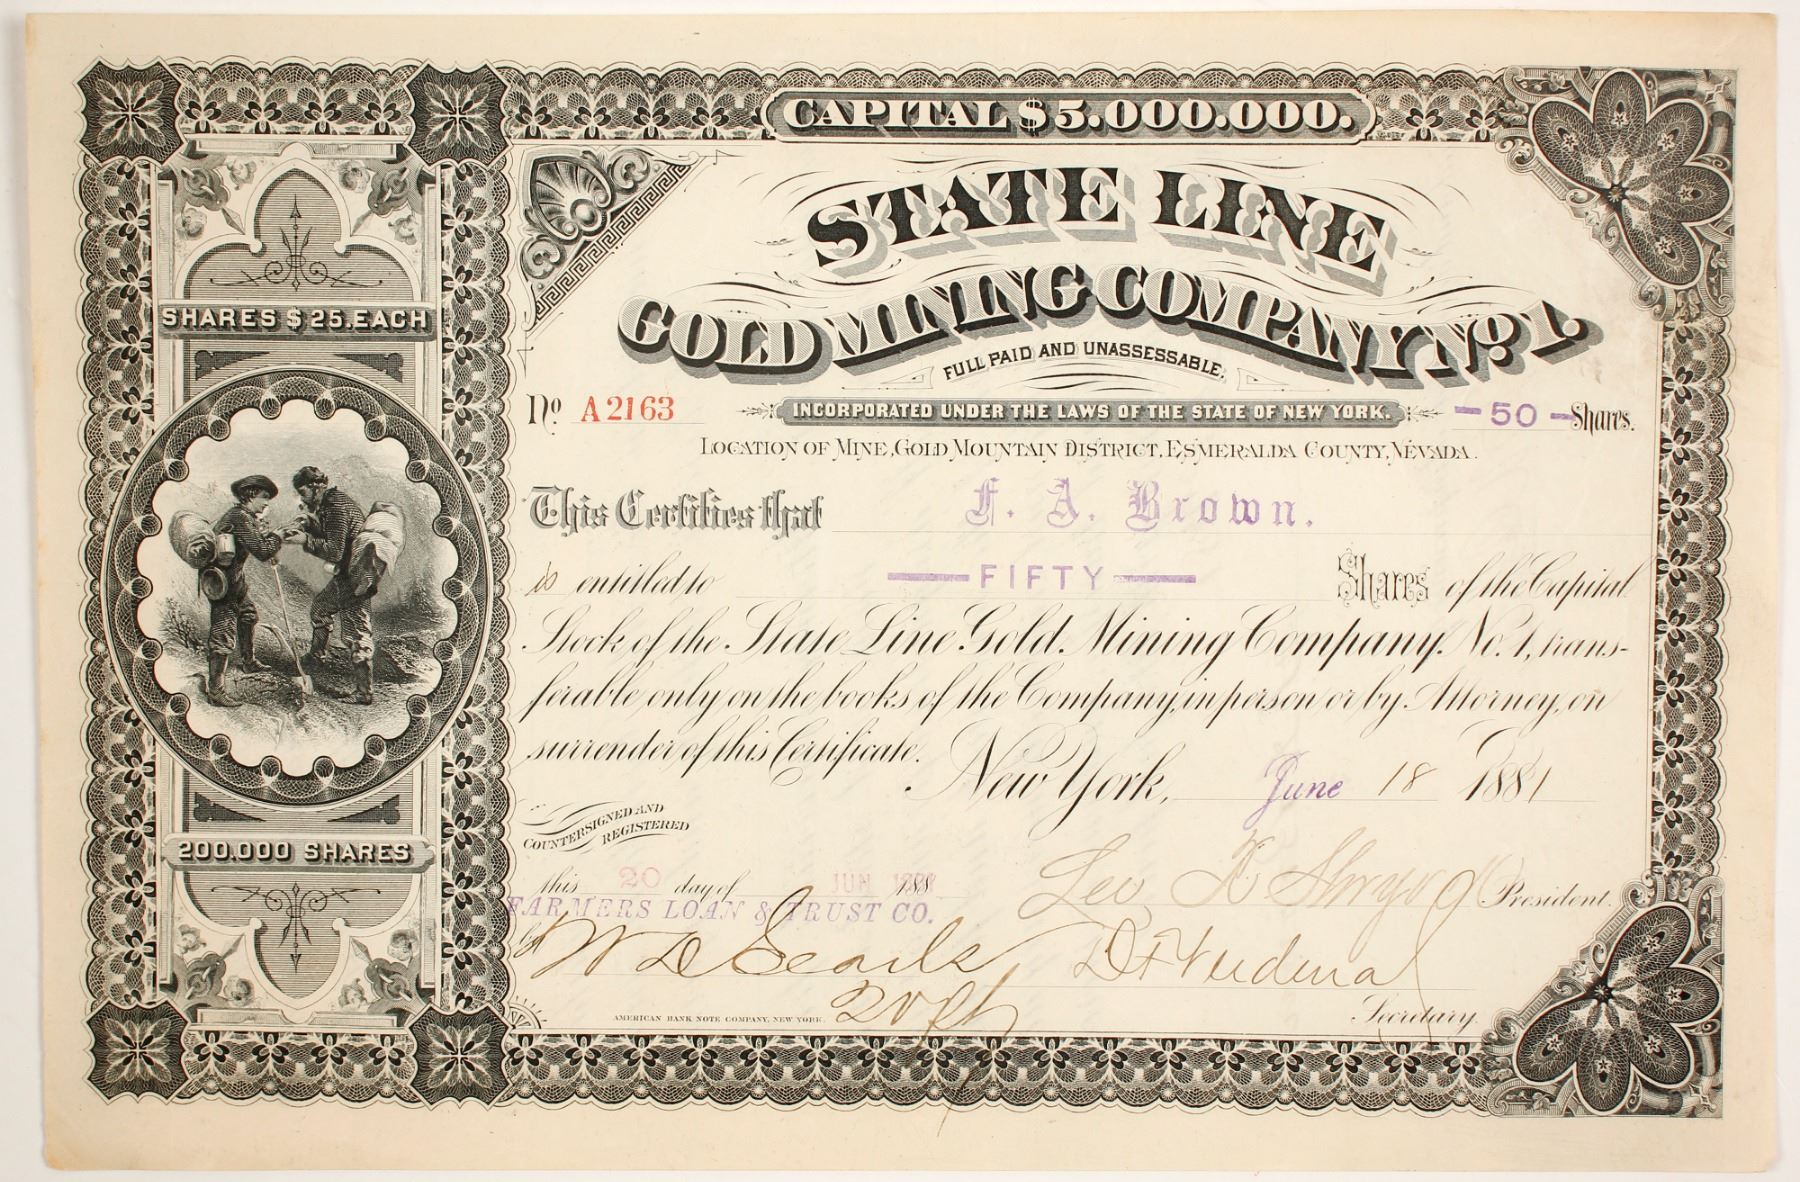 CAPITAL $5.000.000.
STATE LINE
GOLD MINING COMPANY No. 1.
FULL PAID AND UNASSESSABLE.
SHARES $25.EACH
No. A2163
INCORPORATED UNDER THE LAWS OF THE STATE OF NEW YORK.
-50- Shares.
LOCATION OF MINE, GOLD MOUNTAIN DISTRICT, ESMERALDA COUNTY, NEVADA.
This Certifies that F. A. Brown.
is entitled to -FIFTY- Shares of the Capital
Stock of the State Line Gold Mining Company No. 1, trans-
ferable only on the books of the Company, in person or by Attorney, on
surrender of this Certificate. New York, June 18 1881
COUNTERSIGNED AND
REGISTERED
200.000 SHARES
this 20 day of JUN 188
FARMERS LOAN & TRUST CO.
Leo, President.
by W D Searls
D F
Secretary.
AMERICAN BANK NOTE COMPANY, NEW YORK.